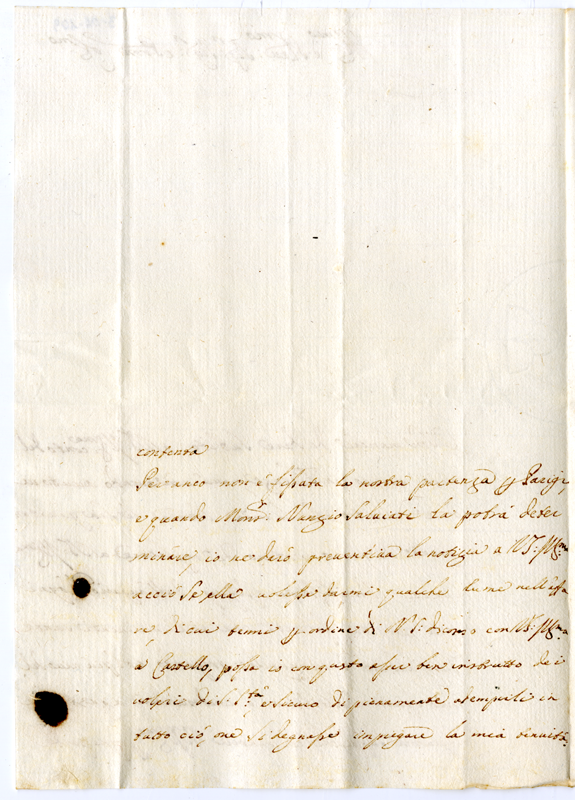 contenta
Per anco non è fissata la nostra partenza p Parigi,
e quando Monsr. Nunzio Salviati la potrà deter
minare, io ne darò preventiva la notizia a V.S. Illma
acciò se ella volesse darmi qualche lume nell'affa
re, di cui tenni p ordine di N. S. discorso con V.S. Illma
a Castello, possa io con questo esser ben instrutto dei
voleri di S. Sta, e sicuro di pienamente adempirli in
tutto ciò, che si degnasse impiegare la mia tenuità,